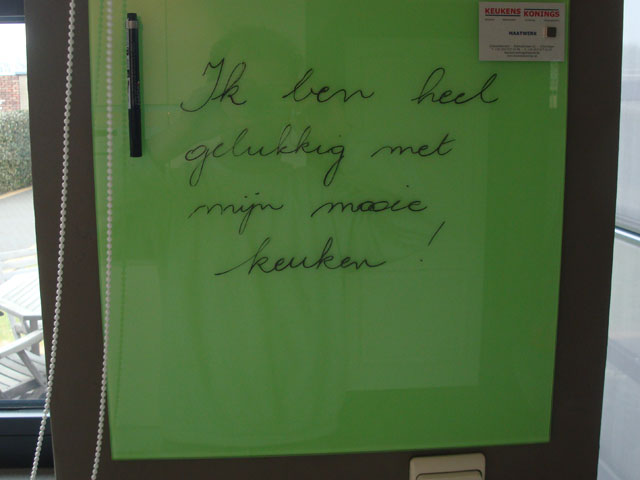 KEUKENS KONINGS
MAATWERK
Ik ben heel
gelukkig met
mijn mooie
keuken !